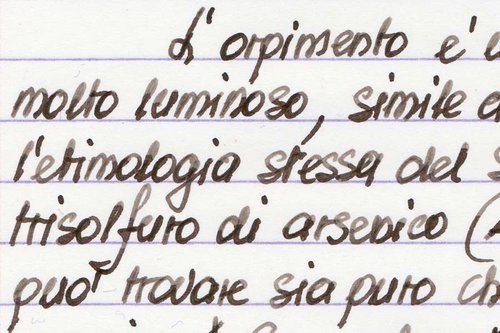 L'orpimento e'
molto luminoso, simile
l'etimologia stessa del
trisolfuro di arsenico (
puo' trovare sia puro